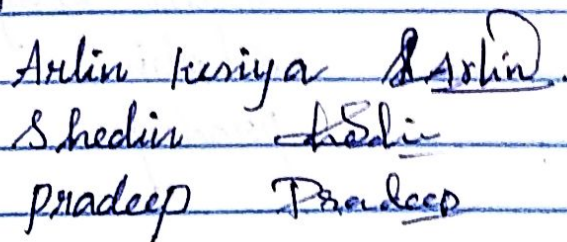 Arlin kesiya Arlin.
Shedin
pradeep Pradeep